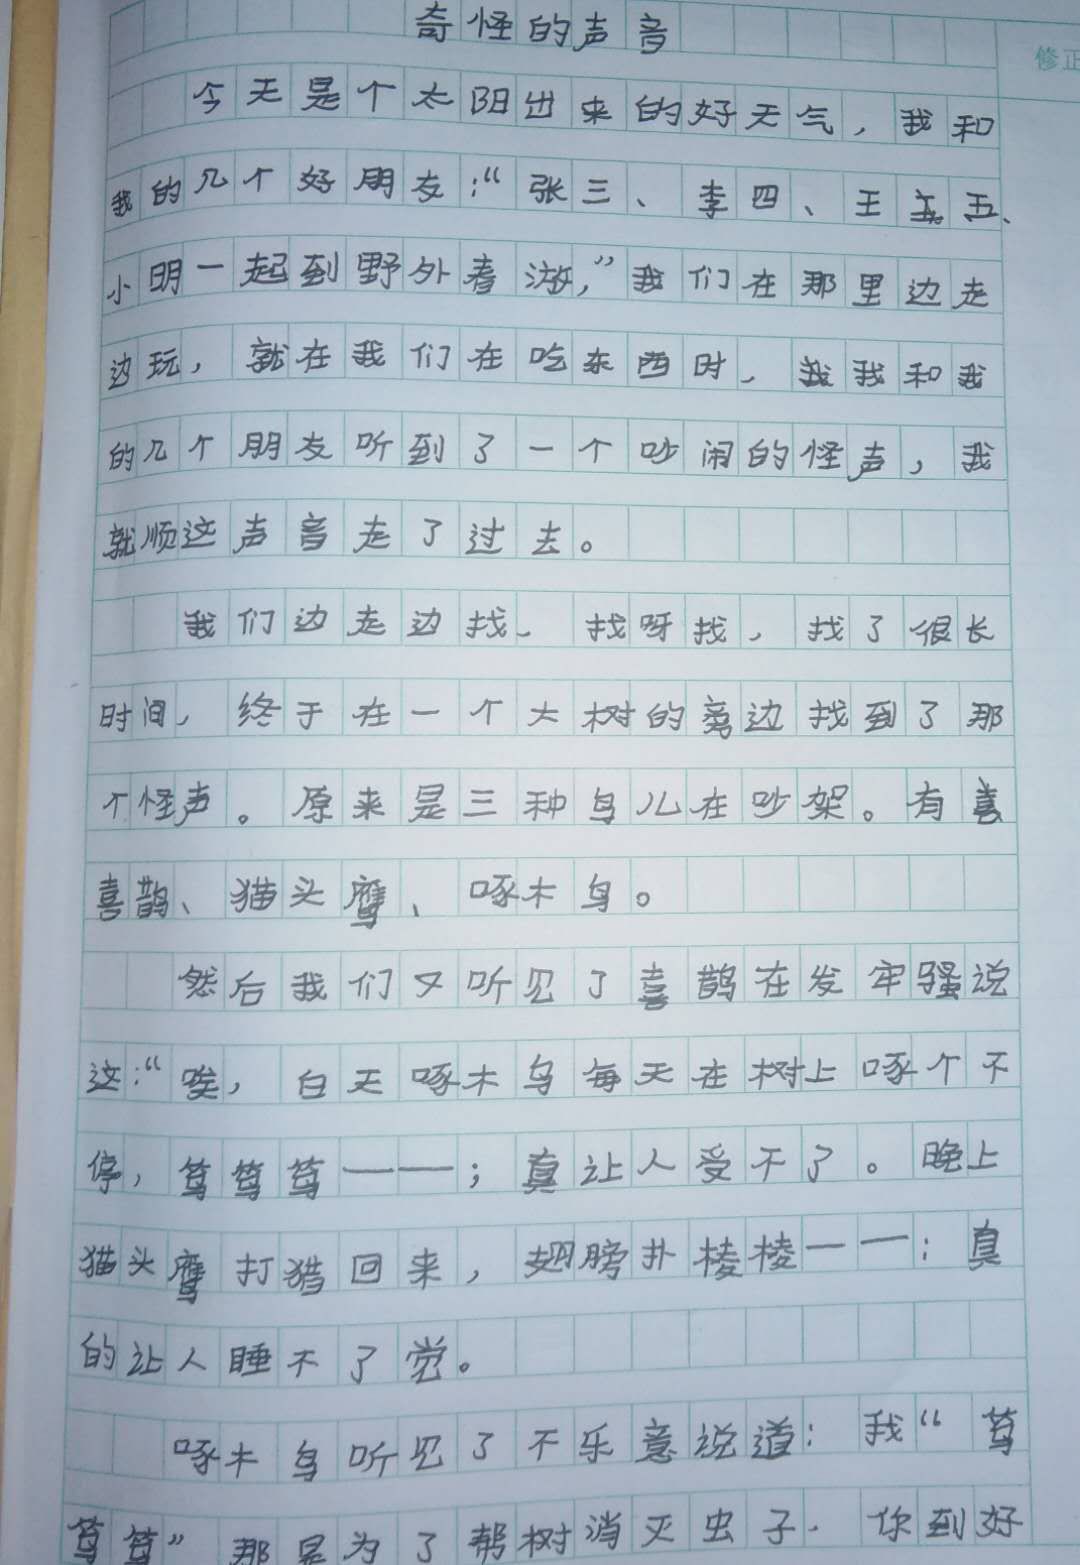 奇怪的声音
修正
今天是个太阳出来的好天气，我和
我的几个好朋友：“张三、李四、王五五、
小明一起到野外着游，”我们在那里边走
边玩，就在我们在吃东西时，我我和我
的几个朋友听到了一个吵闹的怪声，我
就顺这声音走了过去。
我们边走边找、找呀找，找了很长
时间，终于在一个大树的旁边找到了那
个怪声。原来是三种鸟儿在吵架。有喜
喜鹊、猫头鹰、啄木鸟。
然后我们又听见了喜鹊在发牢骚说
这：“唉，白天啄木鸟每天在树上啄个不
停，笃笃笃——；真让人受不了。晚上
猫头鹰打猎回来，翅膀扑棱棱——；真
的让人睡不了觉。
啄木鸟听见了不乐意说道：我“笃
笃笃”那是为了帮树消灭虫子．你到好